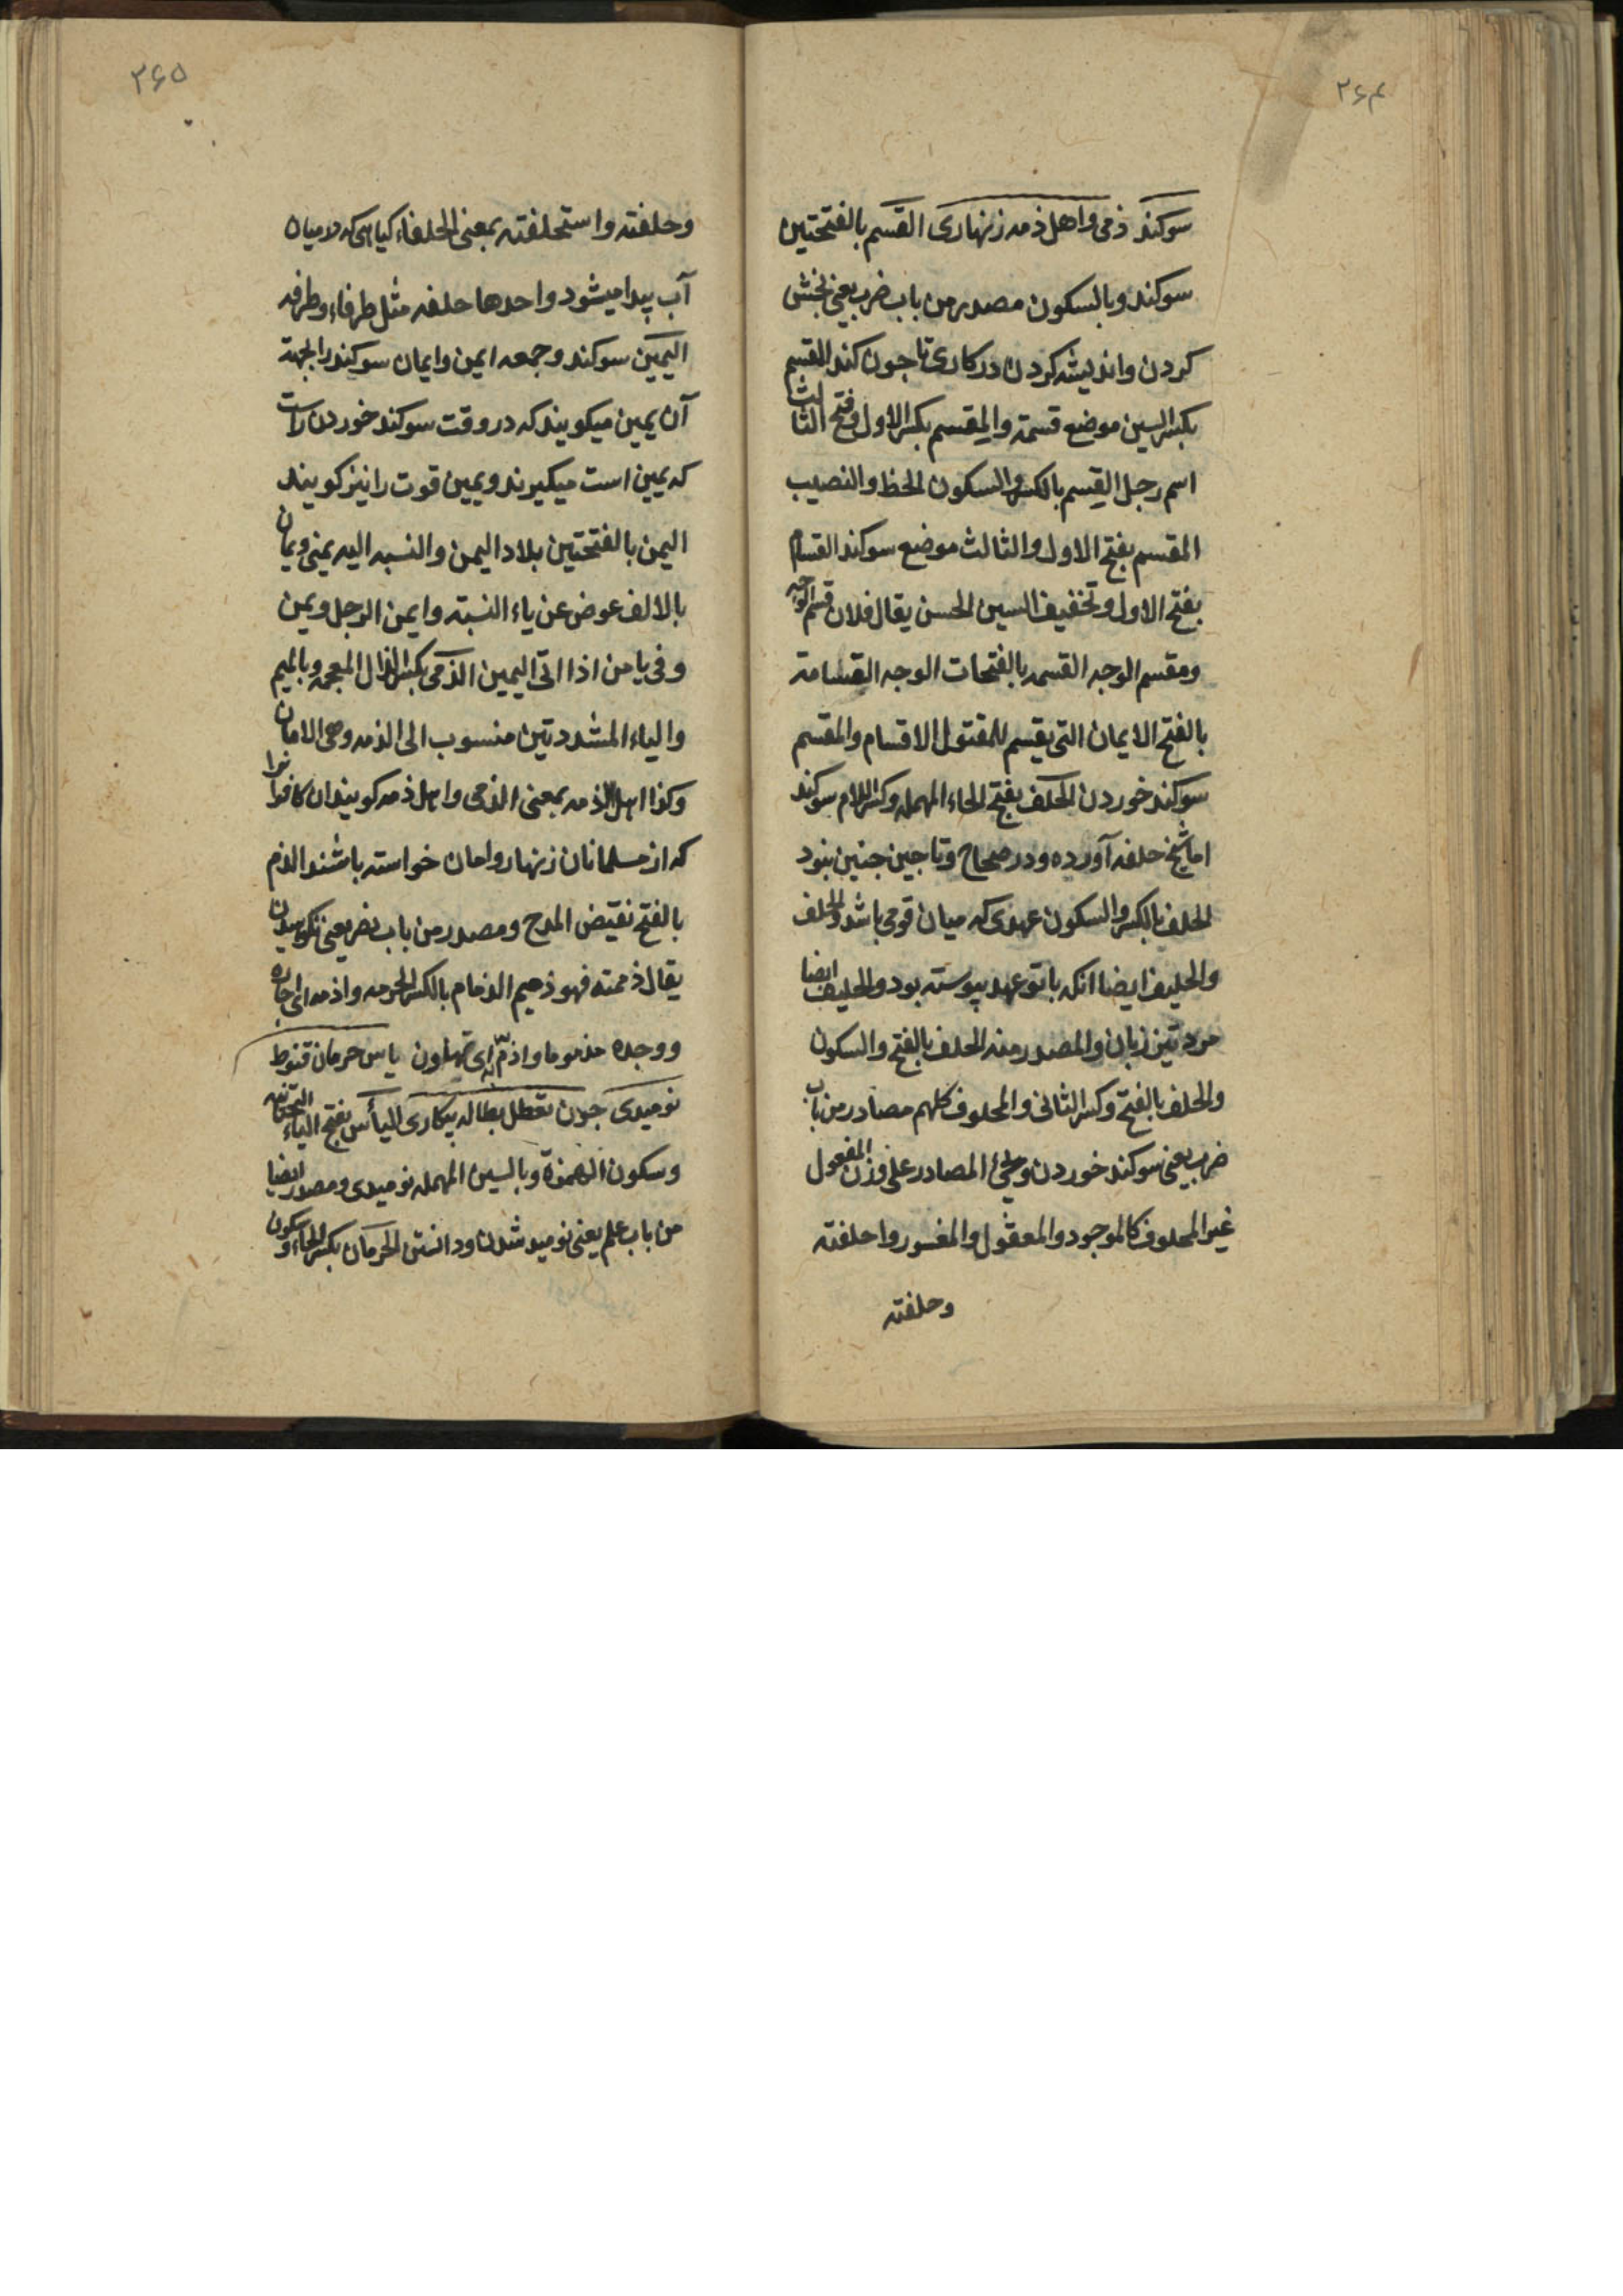 ۳۶۴
سوکند ذمی واهل ذمه زنهاری القسم بالفتحتین
سوکند وبالسکون مصدر من باب ضرب یعنی بخش
کردن واندیشه کردن در کاری تا جون کند المقسم
بکسر السین موضع قسمة والمقسم بکسر الاول وفتح الثالث
اسم رجل القسم بالکسر والسکون الحظ والنصیب
المقسم بفتح الاول والثالث موضع سوکند القسام
بفتح الاول وتخفیف السین الحسن یقال فلان قسیم الوجه
ومقسم الوجه القسمه بالفتحات الوجه القسامة
بالفتح الایمان التی یقسم للمقتول الاقسام والمقسم
سوکند خوردن الحلف بفتح الحاء المهمله وکسر اللام سوکند
اما شیخ حلفه آورده ودر صحاح وتاجین جنین نبود
الحلف بالکسر والسکون عهدی که میان قومی باشد والحلف
والحلیف ایضا انکه باتو عهد پیوسته بود والحلیف ایضا
مرد تیز زبان والمصدر منه الحلف بالفتح والسکون
والحلف بالفتح وکسر الثانی والمحلوف کلهم مصادر من باب
ضرب یعنی سوکند خوردن ومجئ المصادر علی وزن المفعول
غیر المحلوف کالموجود والمعقول والمفسور واحلفته
وحلفته
۳۶۵
وحلفته واستحلفته بمعنی الحلفاء کیاهی که در میان
آب پیدا میشود واحدها حلفه مثل طرفاء وطرفه
الیمین سوکند وجمعه ایمن وایمان سوکند را بجهة
آن یمین میکویند که در وقت سوکند خوردن راست
که یمین است میکیرند ویمین قوت را نیز کویند
الیمن بالفتحتین بلاد الیمن والنسبه الیه یمنی ویمان
بالالف عوض عن یاء النسبة وایمن الرجل ویمن
وفی یامن اذا اتی الیمین الذمی بکسر الذال المعجمه وبالمیم
والیاء المشددتین منسوب الی الذمه وهی الامان
وکذا اهل الذمه بمعنی الذمی واهل ذمه کویند ان کافر را
که از مسلمانان زنهار وامان خواسته باشند الذم
بالفتح نقیض المدح ومصدر من باب نصر یعنی نکوهیدن
یقال ذممته فهو ذمیم الذمام بالکسر الحرمه واذمه ای اجاره
ووجده مذموما واذم به ای تهاون یاس حرمان قنوط
نومیدی جون تعطل بطاله بیکاری الیأس بفتح الیاء التحتانیه
وسکون الهمزة وبالسین المهمله نومیدی ومصدر ایضا
من باب علم یعنی نومید شدن ودانستن الحرمان بکسر الحاء وسکون